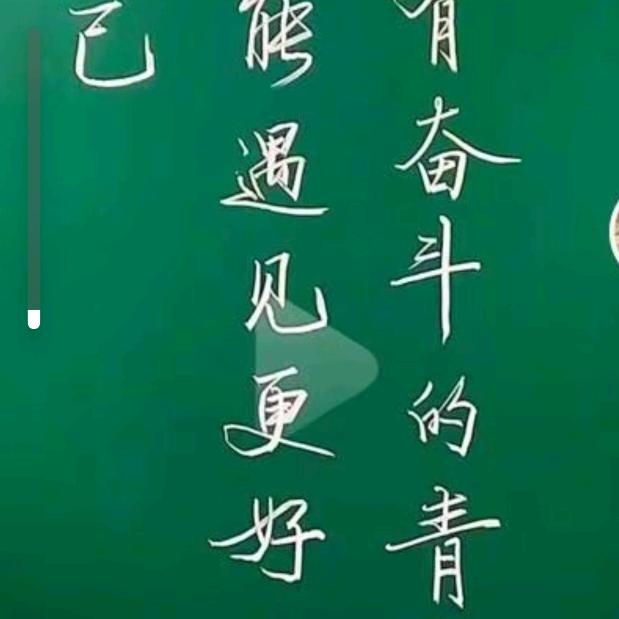 有奋斗的青
能遇见更好
己